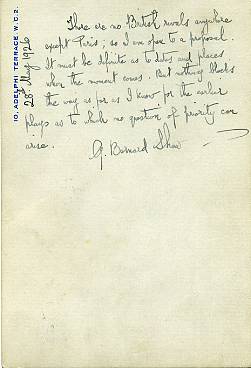 10, ADELPHI TERRACE, W.C.2.
28 Aug 1926
There are no British rivals anywhere
except Paris; so I am open to a proposal.
It must be definite as to dates and places
when the moment comes. But nothing blocks
the way as far as I know for the earlier
plays as to which no question of priority can
arise.
G. Bernard Shaw